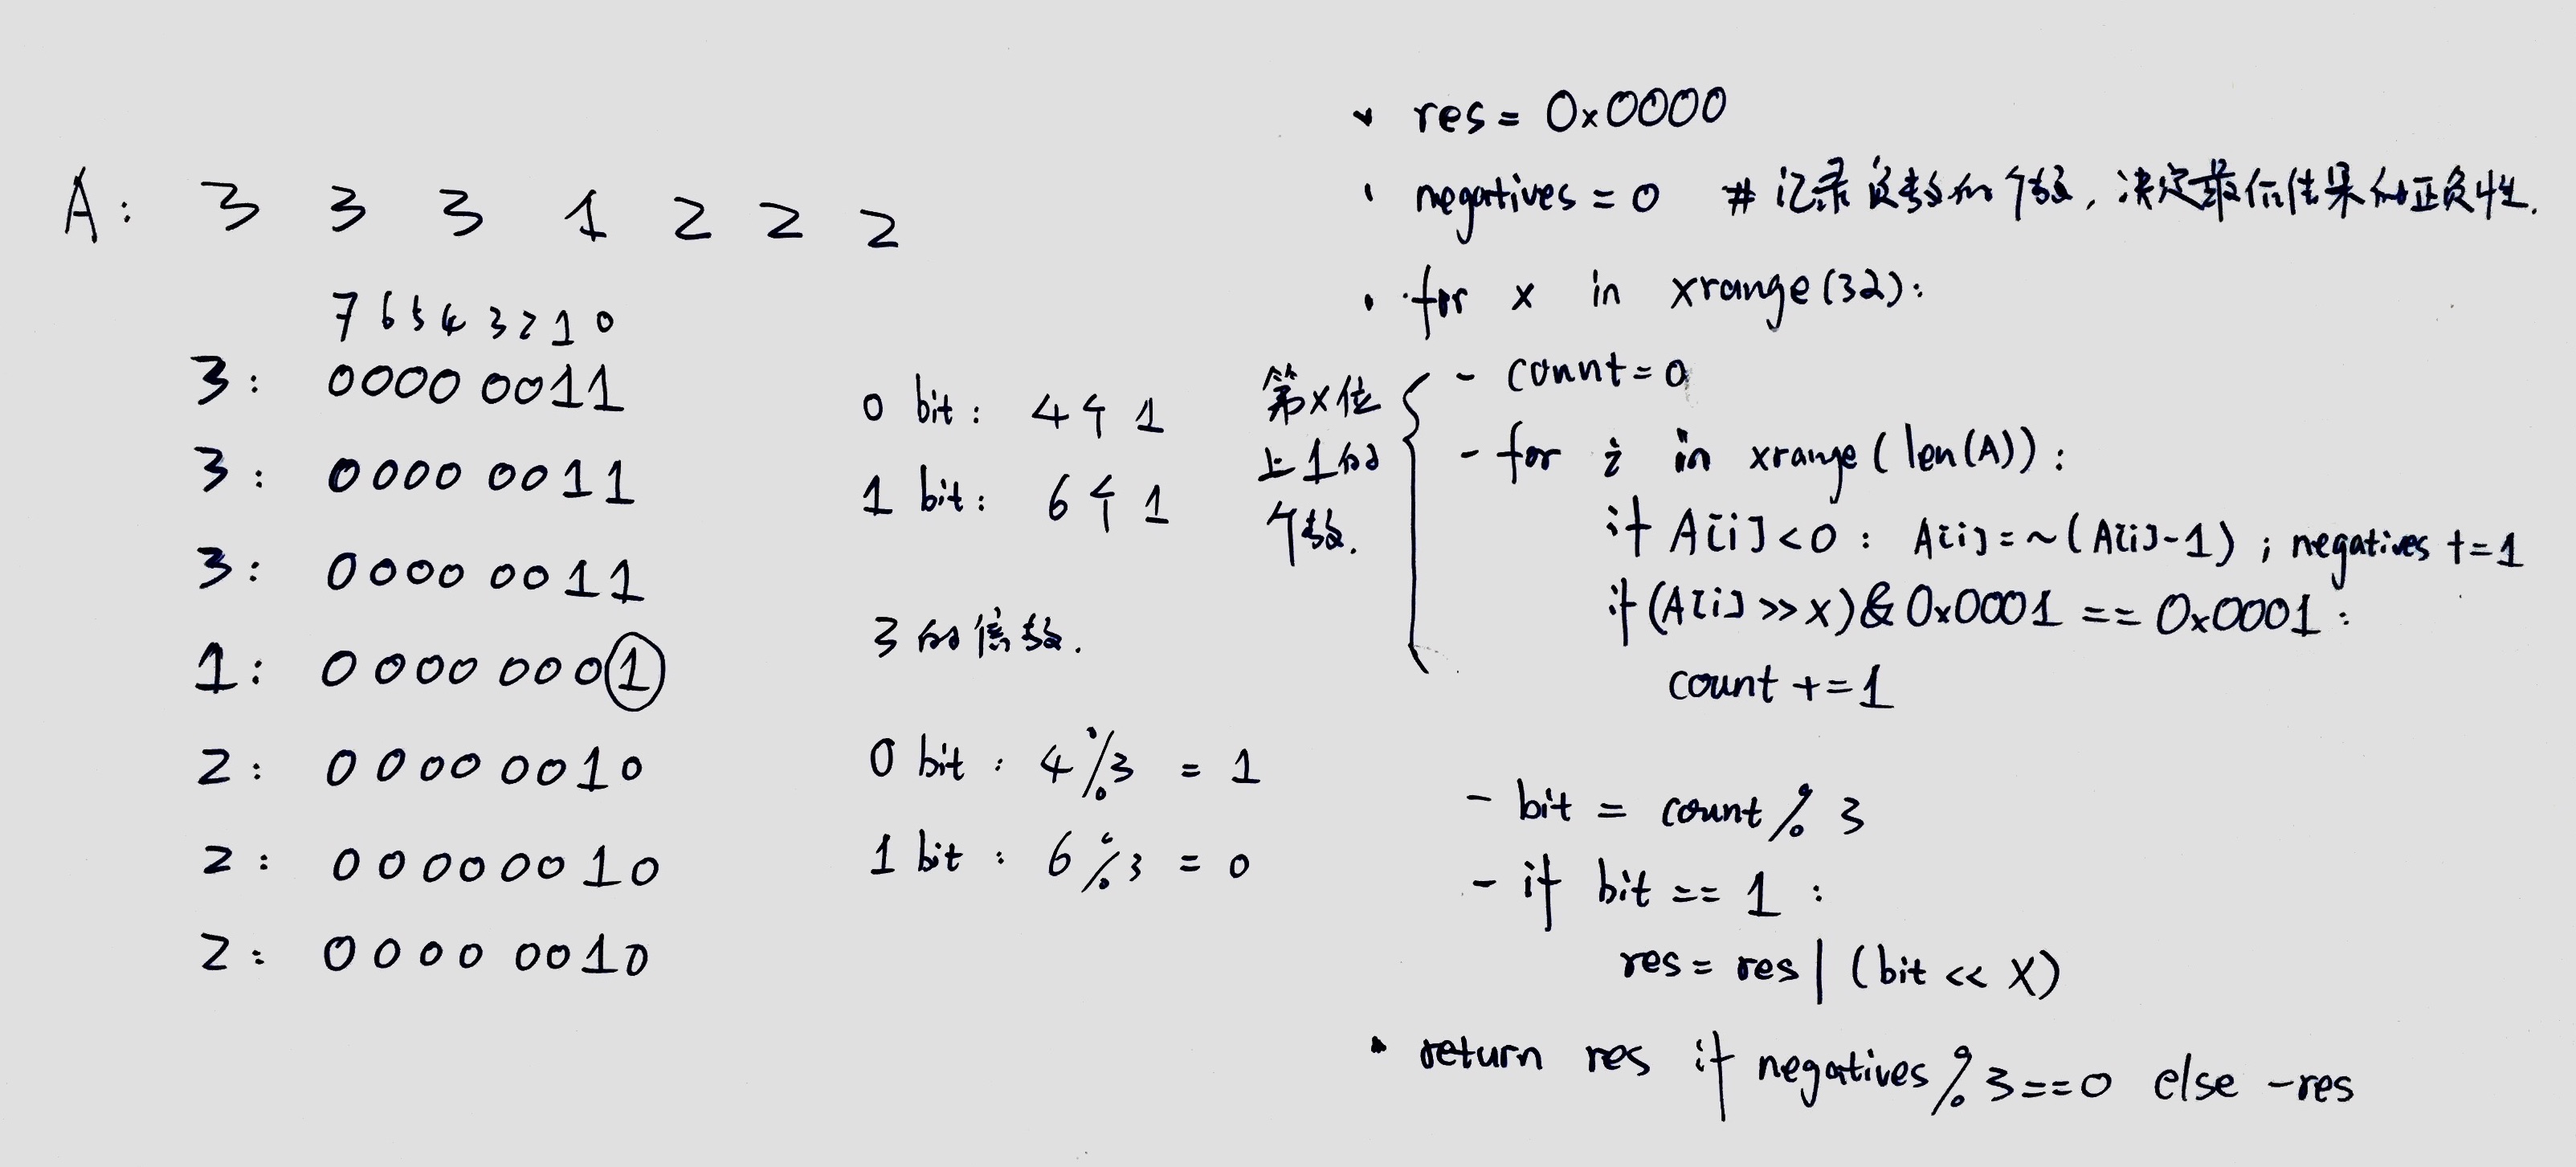 A: 3 3 3 1 2 2 2
7 6 5 4 3 2 1 0
3: 0000 0011
3: 0000 0011
3: 0000 0011
1: 0000 0001
2: 0000 0010
2: 0000 0010
2: 0000 0010
0 bit: 4个1
1 bit: 6个1
3的倍数.
0 bit: 4%3 = 1
1 bit: 6%3 = 0
res = 0x0000
negatives = 0 # 记录负数的个数, 决定最后结果的正负性.
for x in xrange(32):
第x位
上1的
个数.
- count=0
- for i in xrange(len(A)):
if A[i]<0: A[i]=~(A[i]-1); negatives +=1
if (A[i]>>x)&0x0001 == 0x0001:
count +=1
- bit = count % 3
- if bit == 1:
res = res | (bit << x)
return res if negatives%3==0 else -res